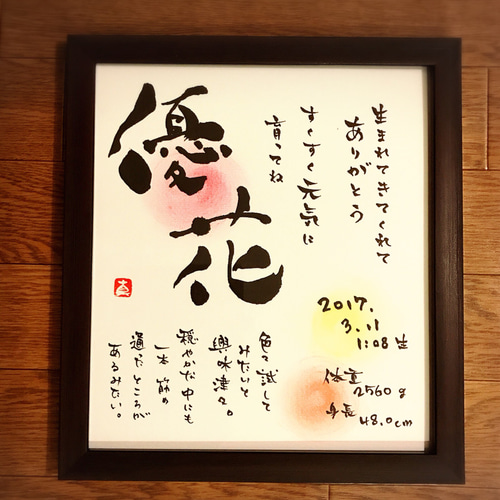 生まれてきてくれて
ありがとう
すくすく元気に
育ってね
優
花
2017.
3.11
1:08生
体重
2560g
身長
48.0cm
色々試して
みたいと
興味津々。
穏やかな中にも
一本筋の
通ったところが
あるみたい。